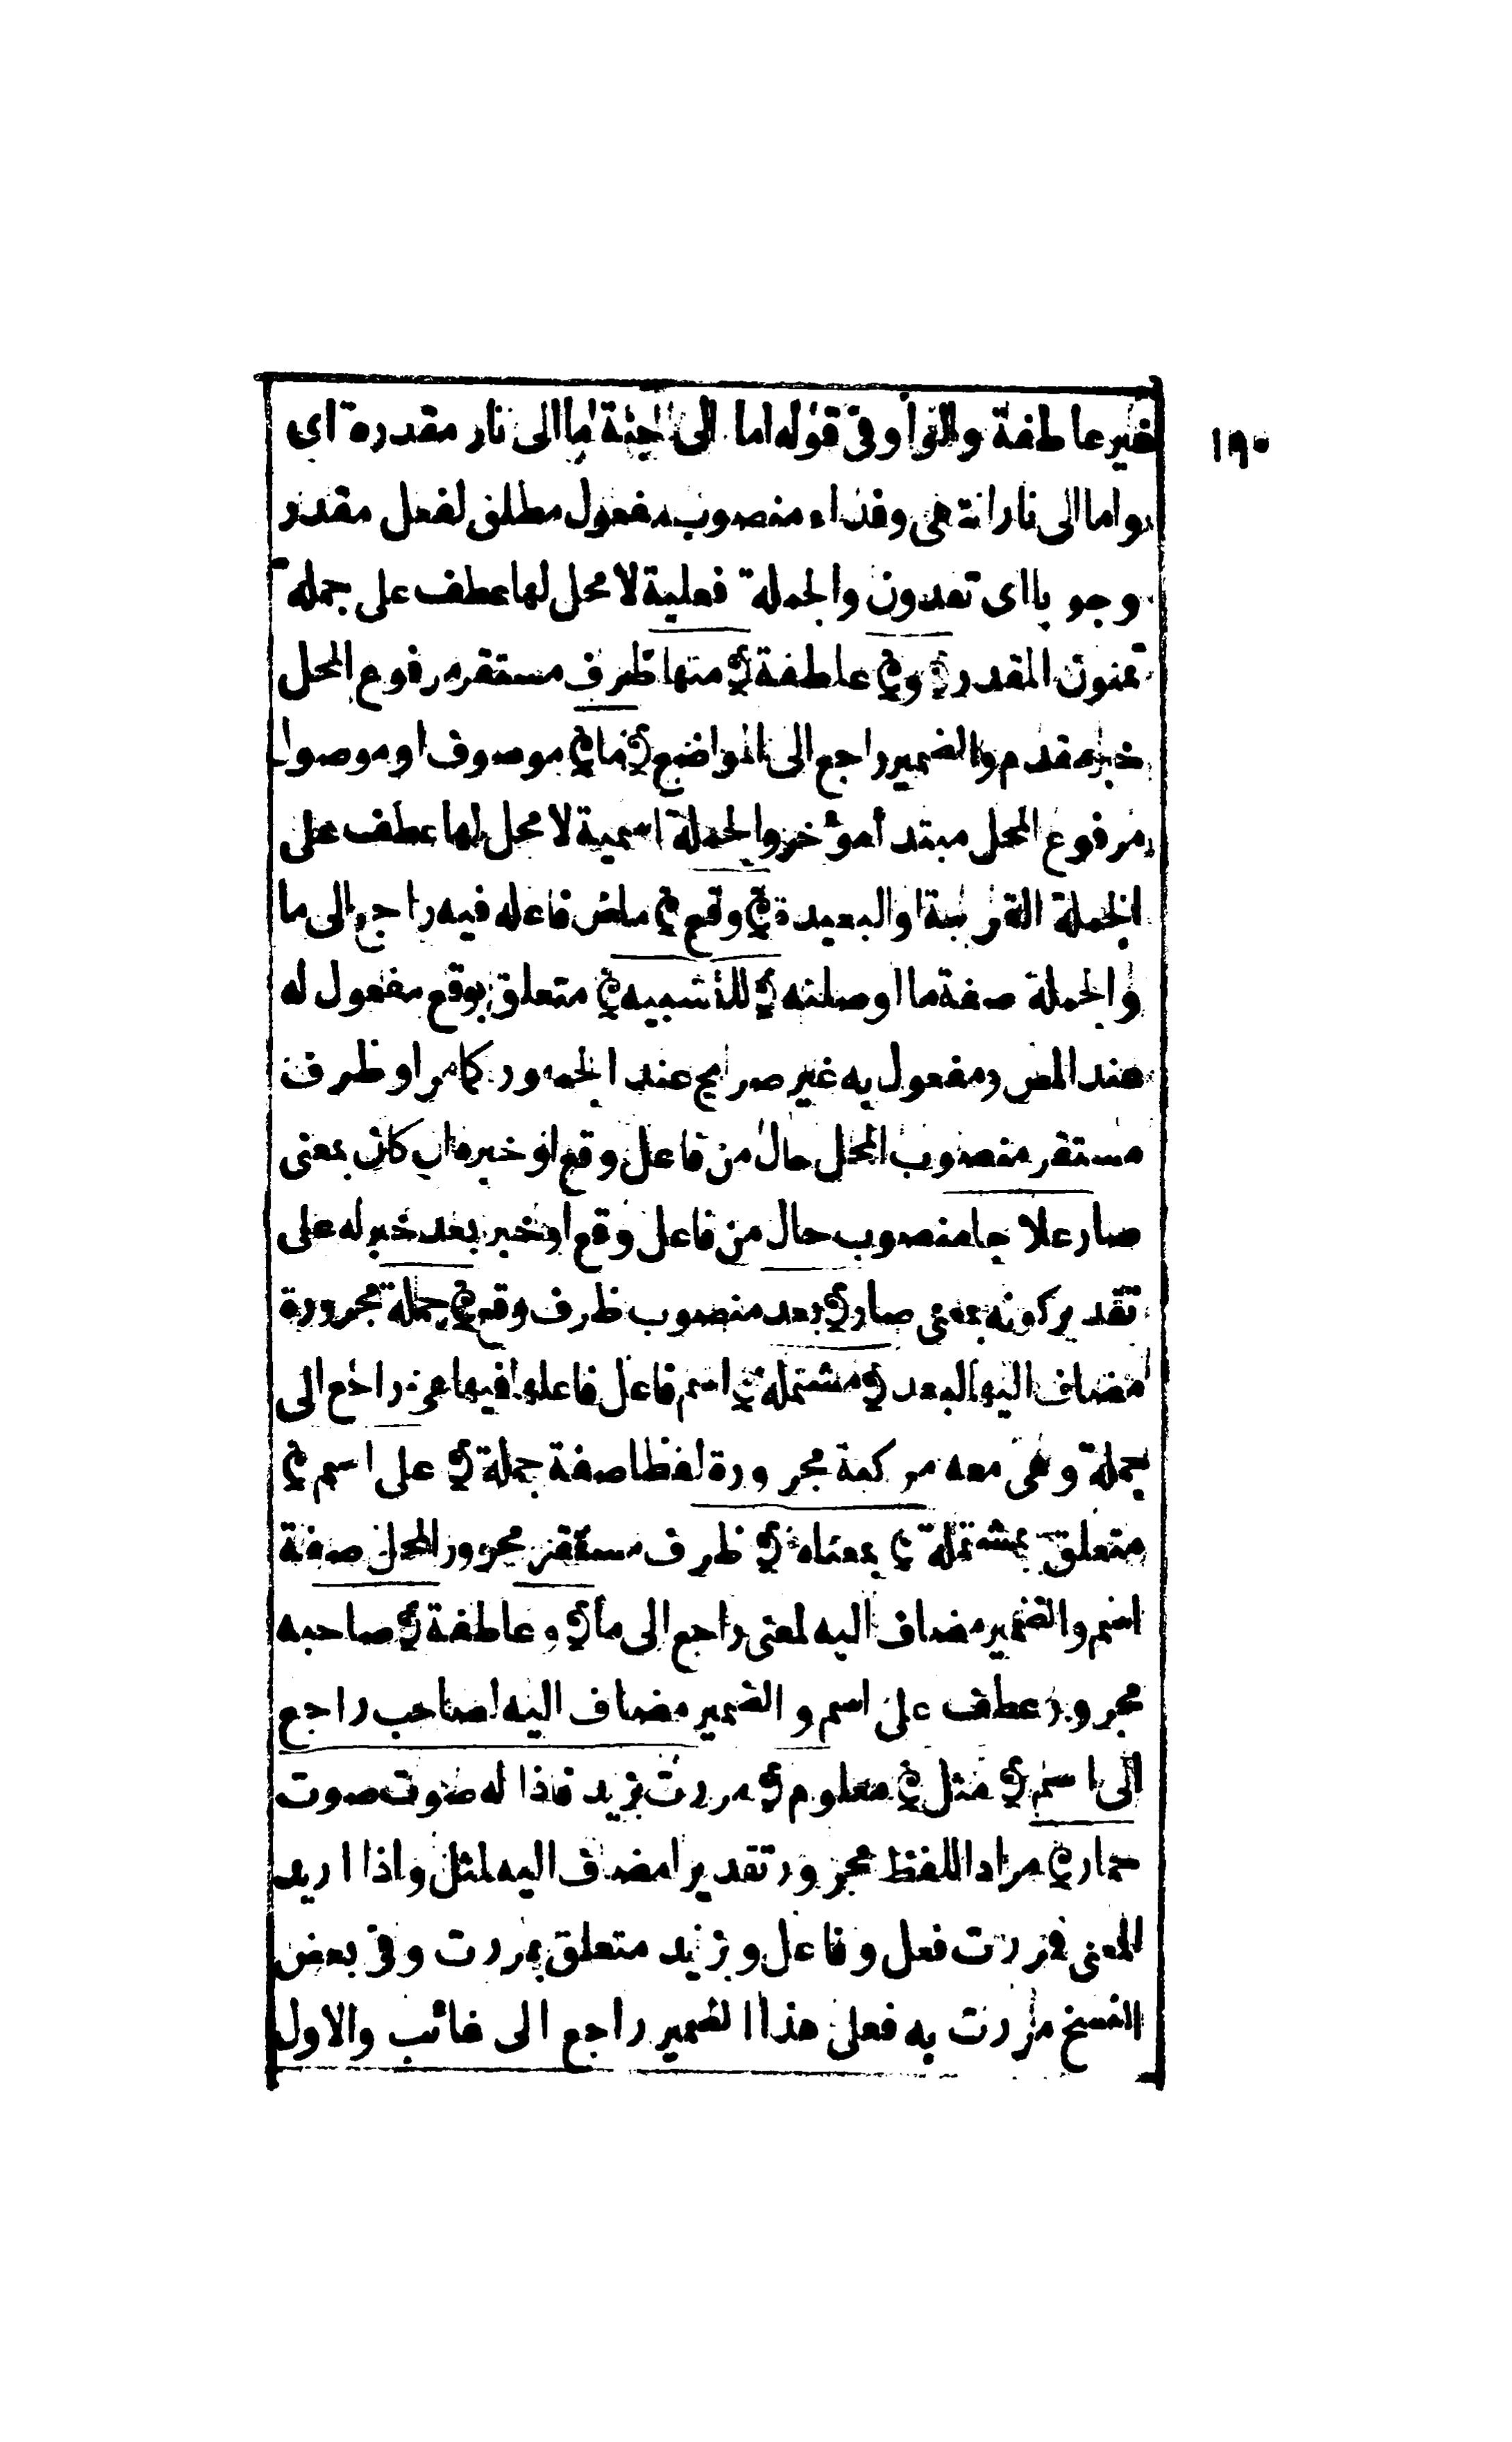 ١٩٠
غير عاطفة والواو فى قوله اما الى جنة اما الى نار مقدرة اى
واما الى نار انتهى وفداء منصوب مفعول مطلق لفعل مقدر
وجوبا اى تفدون والجملة فعلية لا محل لها عطف على جملة
تمنون المقدر ﴿ و ﴾ عاطفة ﴿ منها ﴾ ظرف مستقر مرفوع المحل
خبر مقدم والضمير راجع الى المواضع ﴿ ما ﴾ موصوف او موصول
مرفوع المحل مبتدأ مؤخر والجملة اسمية لا محل لها عطف على
الجملة القريبة او البعيدة ﴿ وقع ﴾ ماض فاعله فيه راجع الى ما
والجملة صفة ما او صلته ﴿ للتشبيه ﴾ متعلق بوقع مفعول له
عند المص ومفعول به غير صريح عند الجمهور كما مر او ظرف
مستقر منصوب المحل حال من فاعل وقع او خبره ان كان بمعنى
صار علاجا منصوب حال من فاعل وقع او خبر بعد خبر له على
تقدير كونه بمعنى صار ﴿ بعد ﴾ منصوب ظرف وقع ﴿ جملة ﴾ مجرورة
مضاف اليها لبعد ﴿ مشتملة ﴾ اسم فاعل فاعلها فيها هى راجع الى
جملة وهى معه مركبة مجرورة لفظا صفة جملة ﴿ على اسم ﴾
متعلق بمشتملة ﴿ بمعناه ﴾ ظرف مستقر مجرور المحل صفة
اسم والضمير مضاف اليه لمعنى راجع الى ما ﴿ و ﴾ عاطفة ﴿ صاحبه ﴾
مجرور عطف على اسم والضمير مضاف اليه لصاحب راجع
الى اسم ﴿ مثل ﴾ معلوم ﴿ مررت بزيد فاذا له صوت صوت
حمار ﴾ مراد اللفظ مجرور تقديرا مضاف اليه لمثل واذا اريد
المعنى فمررت فعل وفاعل وبزيد متعلق بمررت وفى بعض
النسخ مررت به فعلى هذا الضمير راجع الى غائب والاول